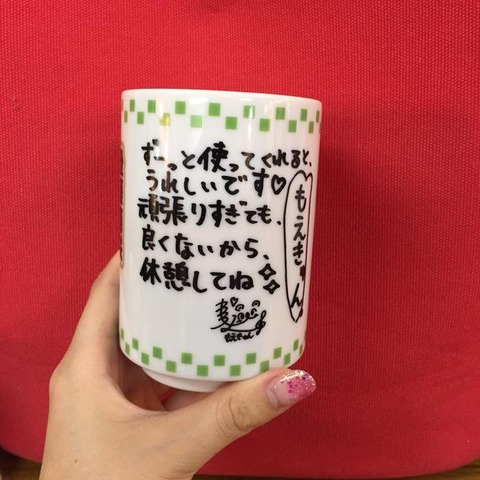 ずーっと使ってくれると、
うれしいです♡
頑張りすぎても、
良くないから、
休憩してね
もえきゅん